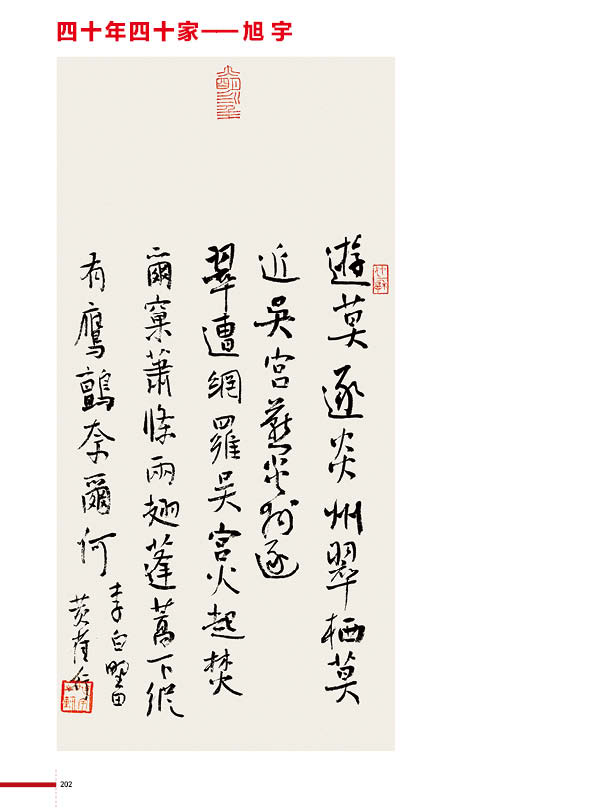 四十年四十家——旭宇
遊莫逐炎州翠栖莫
近吳宮燕炎州逐
翠遭網羅吳宮火起焚
爾窠蕭條兩翅蓬蒿下縱
有鷹鸇奈爾何
李白野田
黃雀行
202